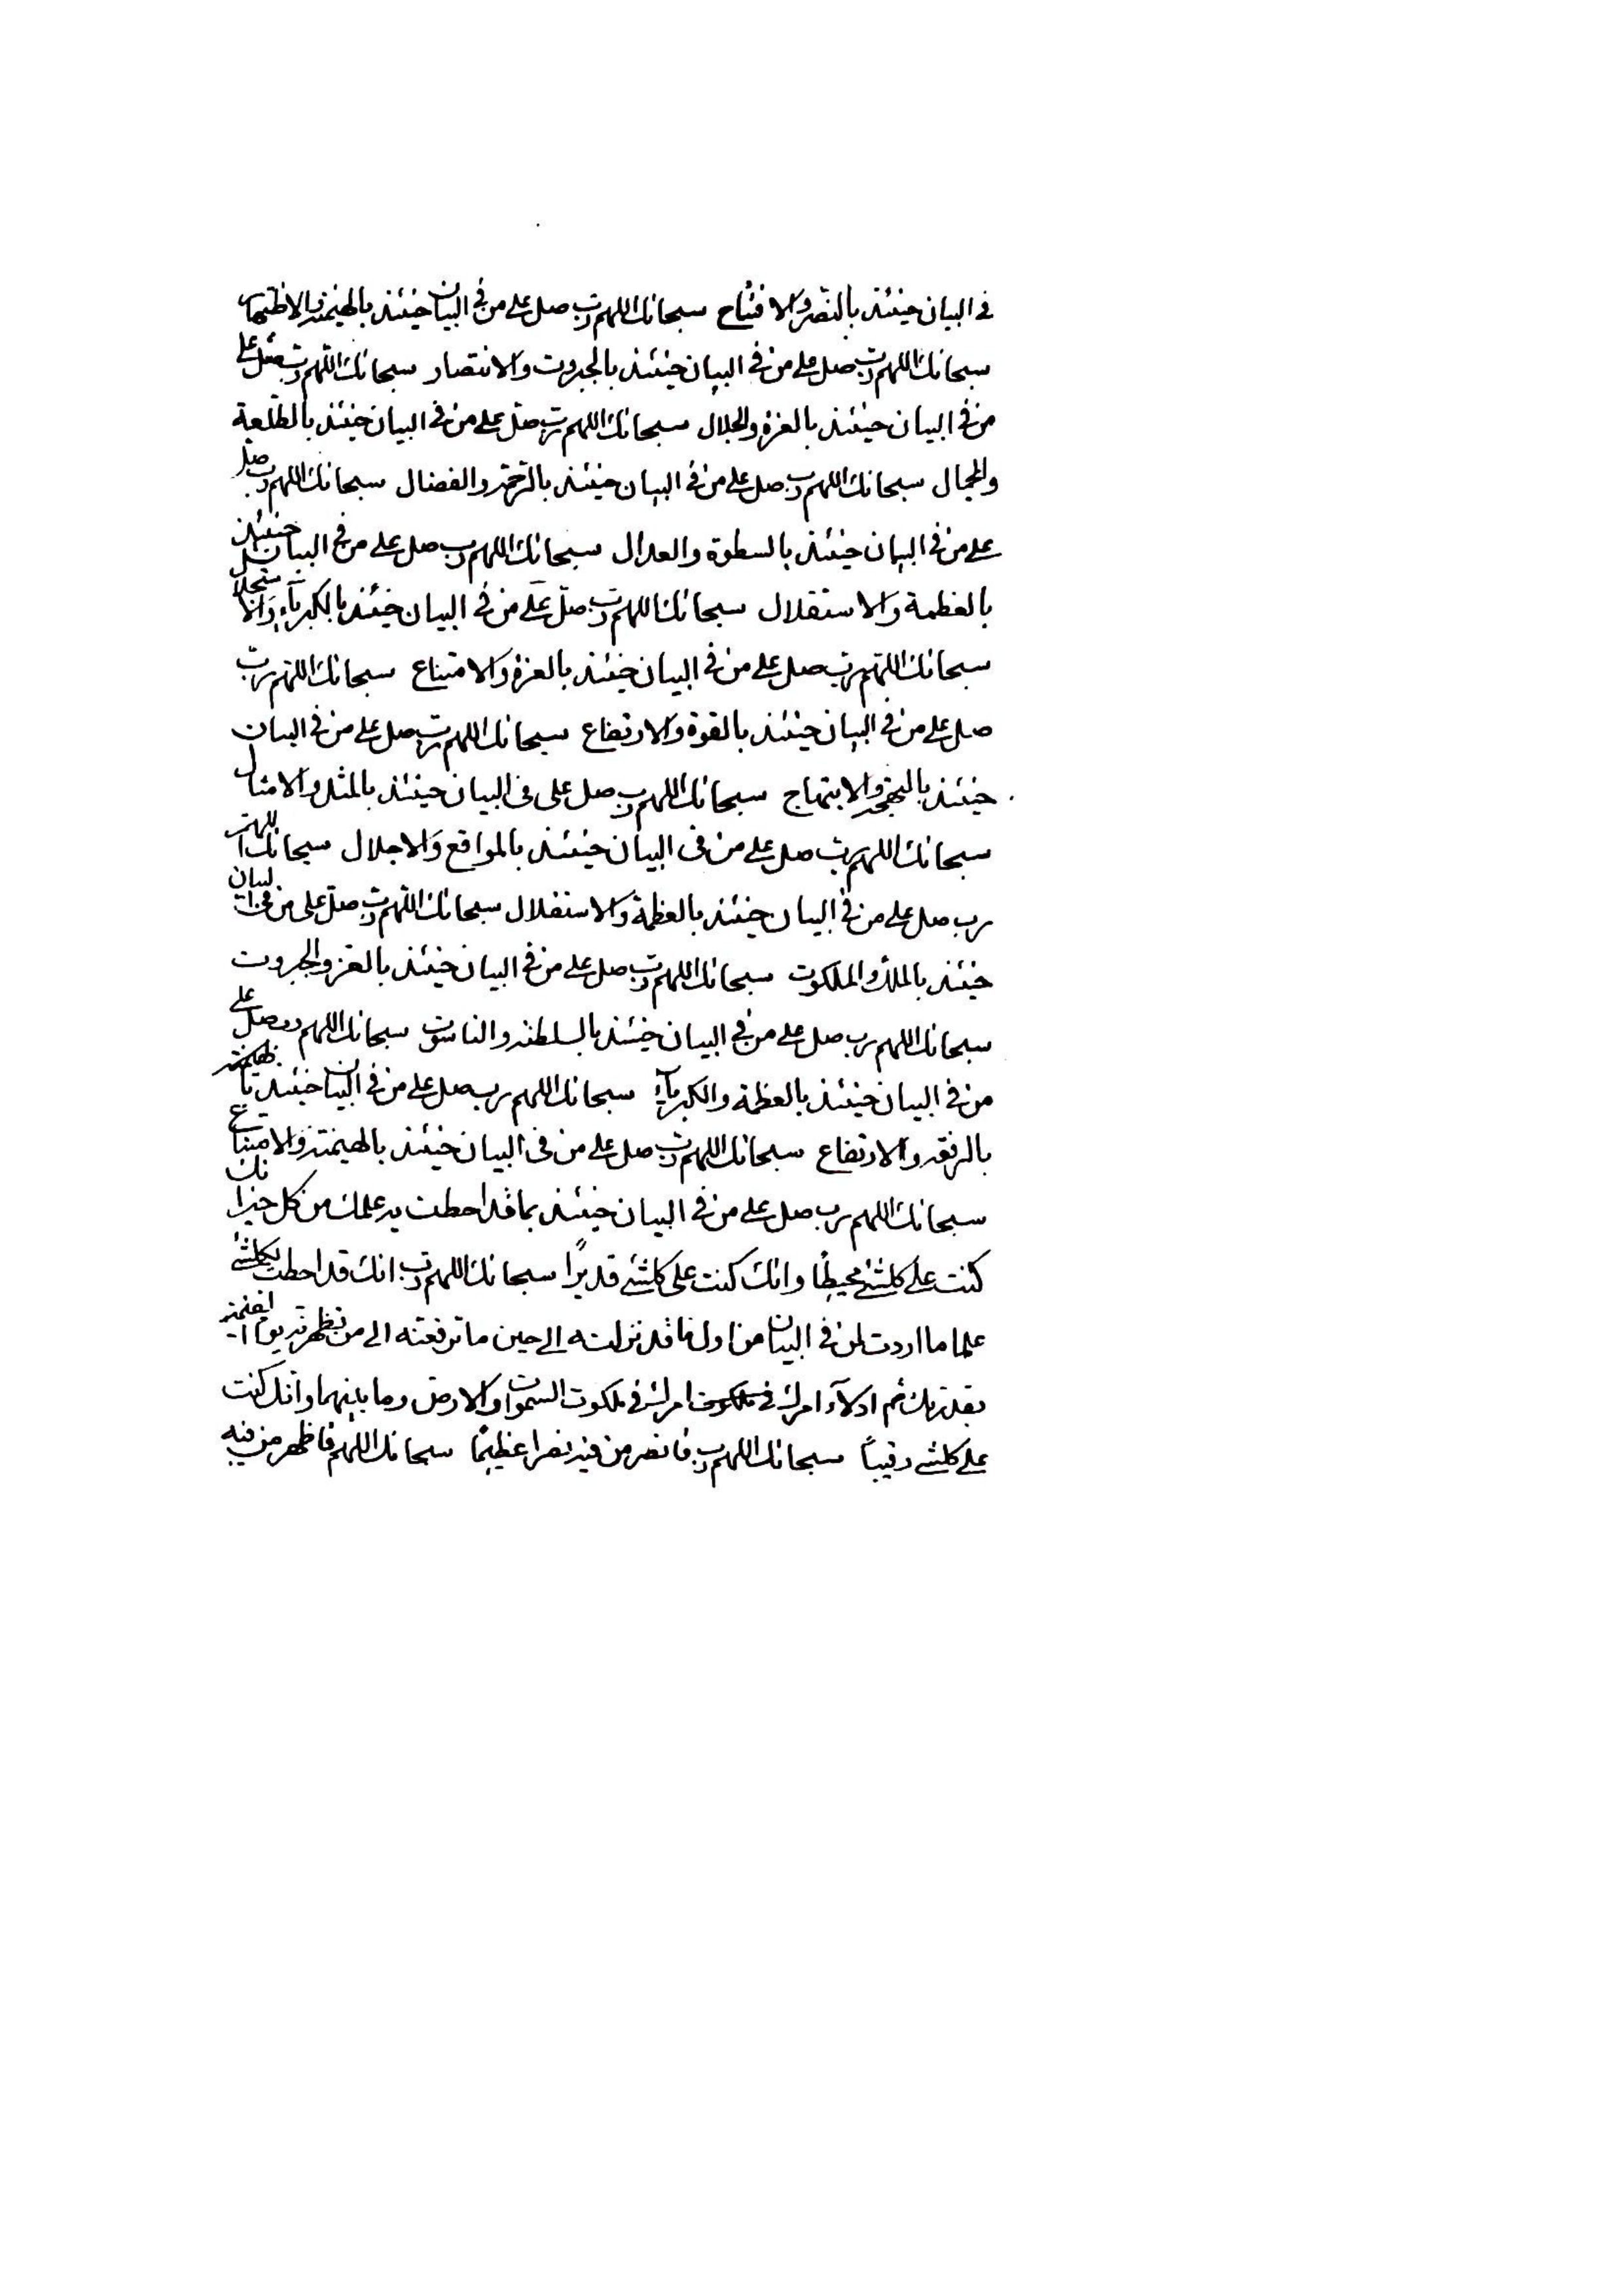 في البيان حينئذ بالنصر والافتتاح سبحانك اللهم رب صل على من في البيان حينئذ بالهيمنة والاظتهار
سبحانك اللهم رب صل على من في البيان حينئذ بالجبروت والانتصار سبحانك اللهم رب صل على
من في البيان حينئذ بالعزة والجلال سبحانك اللهم رب صل على من في البيان حينئذ بالطلعة
والجمال سبحانك اللهم رب صل على من في البيان حينئذ بالرحمة والفضال سبحانك اللهم رب صل
على من في البيان حينئذ بالسطوة والعدال سبحانك اللهم رب صل على من في البيان حينئذ
بالعظمة والاستقلال سبحانك اللهم رب صل على من في البيان حينئذ بالكبرياء والاستجلال
سبحانك اللهم رب صل على من في البيان حينئذ بالعزة والامتناع سبحانك اللهم رب
صل على من في البيان حينئذ بالقوة والارتفاع سبحانك اللهم رب صل على من في البيان
حينئذ بالبهجة والابتهاج سبحانك اللهم رب صل على فى البيان حينئذ بالمثل والامثال
سبحانك اللهم رب صل على من فى البيان حينئذ بالمواقع والاجلال سبحانك اللهم
رب صل على من في البيان حينئذ بالعظمة والاستقلال سبحانك اللهم رب صل على من في البيان
حينئذ بالملك والملكوت سبحانك اللهم رب صل على من في البيان حينئذ بالعز والجبروت
سبحانك اللهم رب صل على من في البيان حينئذ بالسلطنة والناسوت سبحانك اللهم رب صل على
من في البيان حينئذ بالعظمة والكبرياء سبحانك اللهم رب صل على من في البيان حينئذ با
بالرفعة والارتفاع سبحانك اللهم رب صل على من فى البيان حينئذ بالهيمنة والامتناع
سبحانك اللهم رب صل على من في البيان حينئذ بما قد احطت به علمك من كل خير انك
كنت على كلشئ محيطا وانك كنت على كلشئ قديرا سبحانك اللهم رب انك قد احطت بكلشئ
علما ما اردت لمن في البيان من اول ما قد نزلته الى حين ما ترفعنه الى من تظهرنه يوم القيمة
ثم ادلاء امرك في ملكوت امرك في ملكوت السموات والارض وما بينهما وانك كنت
على كلشئ رقيبا سبحانك اللهم رب فانصر من فيه نصرا عظيما سبحانك اللهم فاظهر من فيه